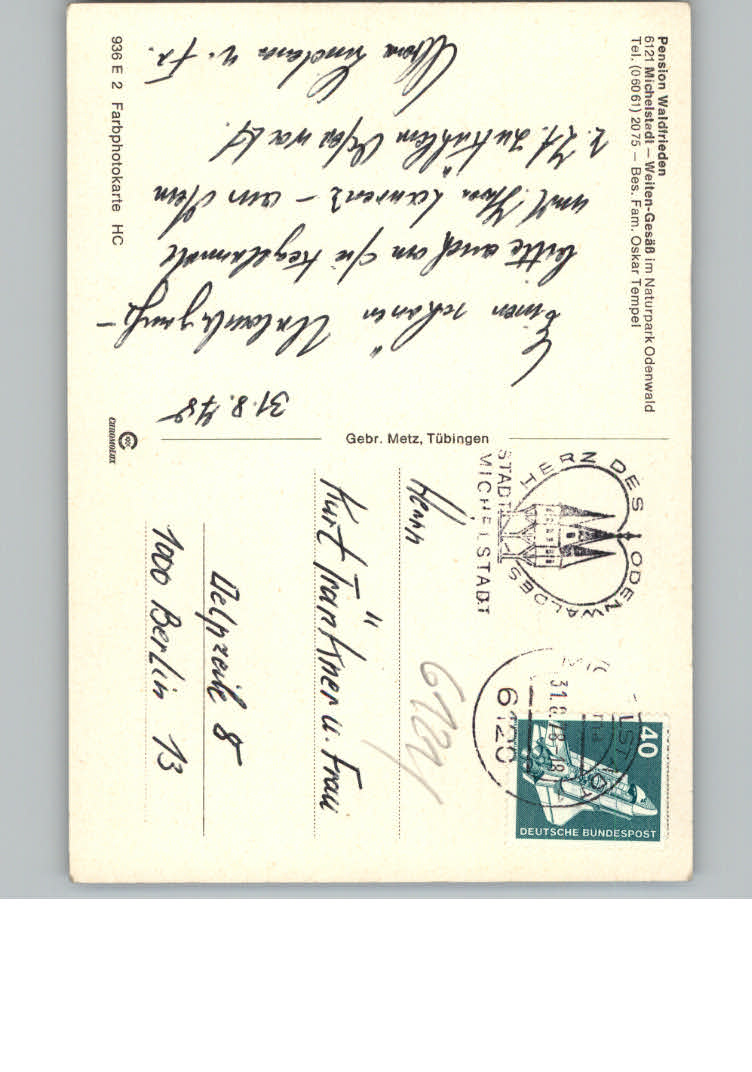 Pension Waldfrieden
6121 Michelstadt — Weiten-Gesäß im Naturpark Odenwald
Tel. (0 60 61) 20 75 — Bes. Fam. Oskar Tempel
31.8.78
Einen schönen Urlaubsgruß –
bitte auch an die Kegelrunde
und Frau Laurenz – aus dem
z. Zt. zu kühlen Odenwald.
u. Fr.
936 E 2 Farbphotokarte HC
CHROMOLUX
Gebr. Metz, Tübingen
STADT
MICHELSTADT
HERZ DES ODENWALDES
31.8.78
6120
40
DEUTSCHE BUNDESPOST
6121
Herrn
Kurt Tränkner u. Frau
Delpzeile 8
1000 Berlin 13